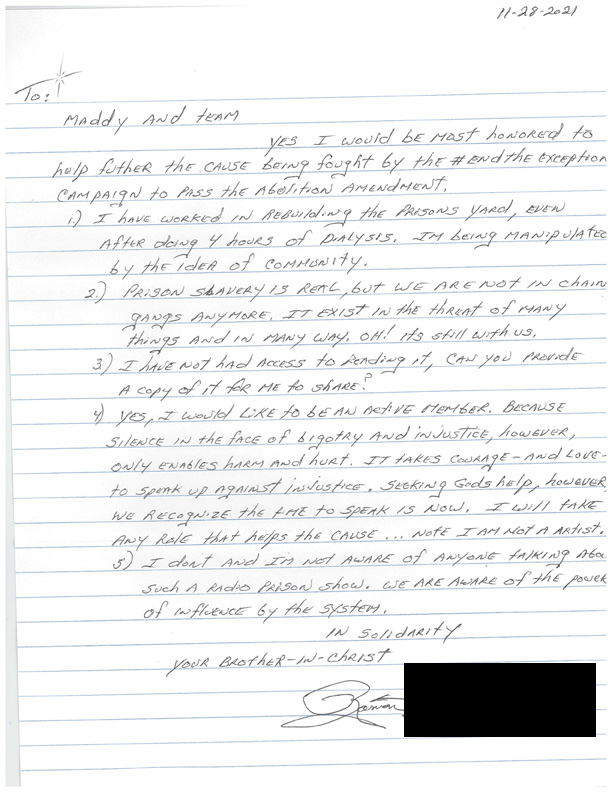 11-28-2021
To:
Maddy and team
Yes I would be most honored to
help futher the cause being fought by the #EndtheException
Campaign to pass the Abolition Amendment.
1.) I have worked in rebuilding the prisons yard, even
after doing 4 hours of dialysis. I'm being manipulated
by the idea of community.
2.) Prison slavery is real, but we are not in chain
gangs anymore. It exist in the threat of many
things and in many way. Oh! its still with us.
3.) I have not had access to reading it, can you provide
a copy of it for me to share?
4) Yes, I would like to be an active member. Because
silence in the face of bigotry and injustice, however,
only enables harm and hurt. It takes courage - and love -
to speak up against injustice. Seeking Gods help, however
we recognize the time to speak is now. I will take
any role that helps the cause ... Note I am not a artist.
5) I don't and I'm not aware of anyone talking abou
such a radio prison show. We are aware of the power
of influence by the system.
In Solidarity
Your Brother-in-Christ